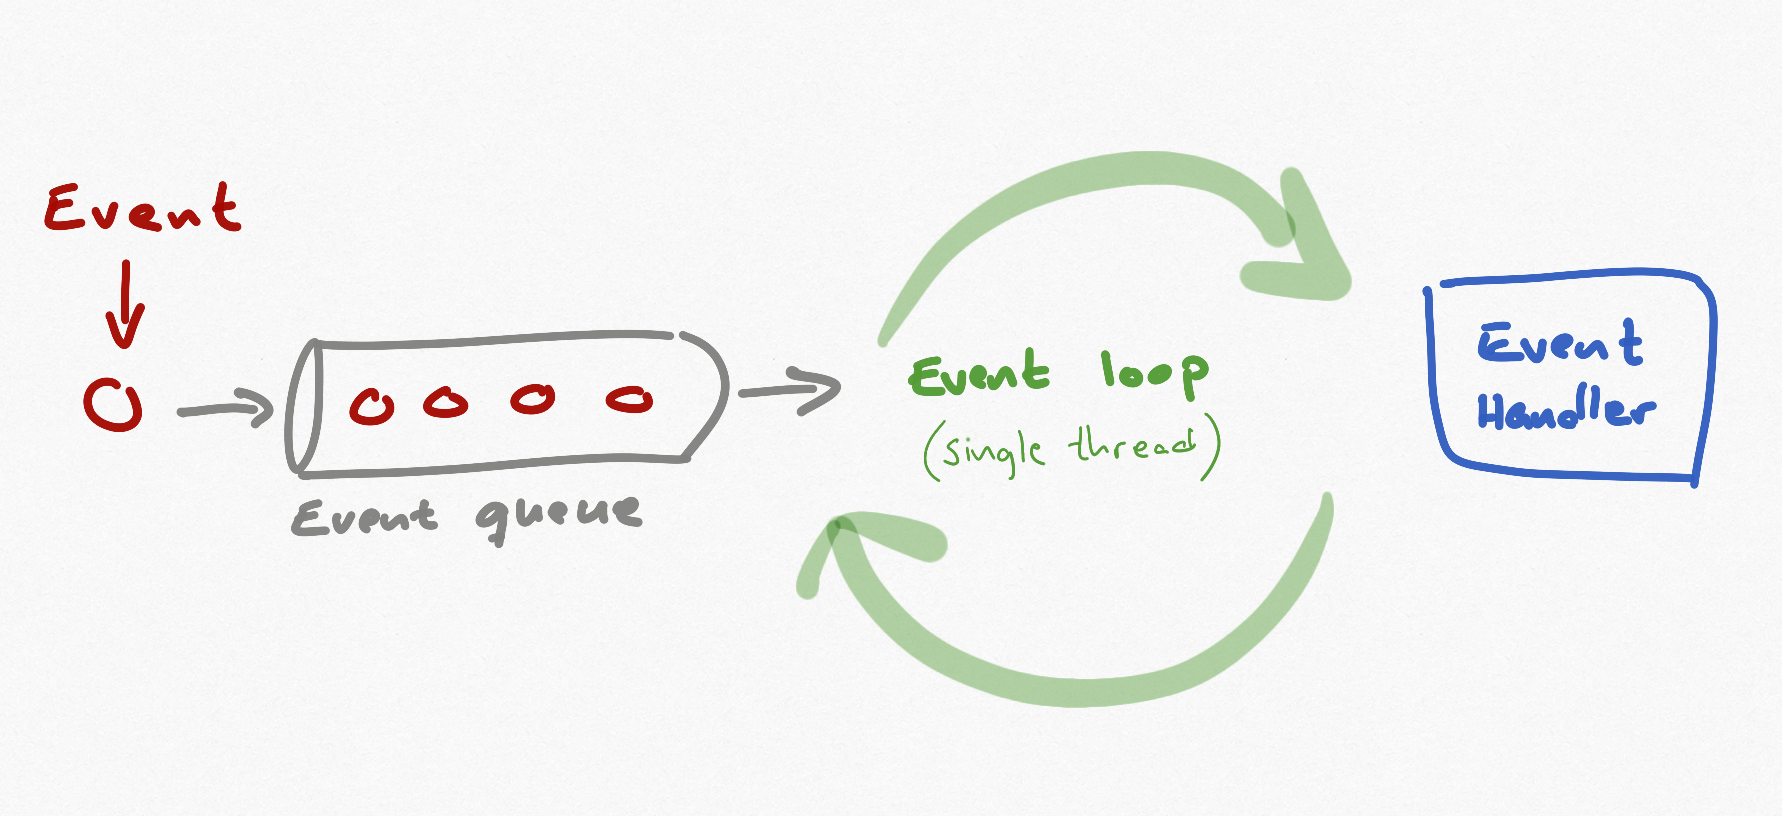 Event
Event queue
Event loop
(single thread)
Event
Handler